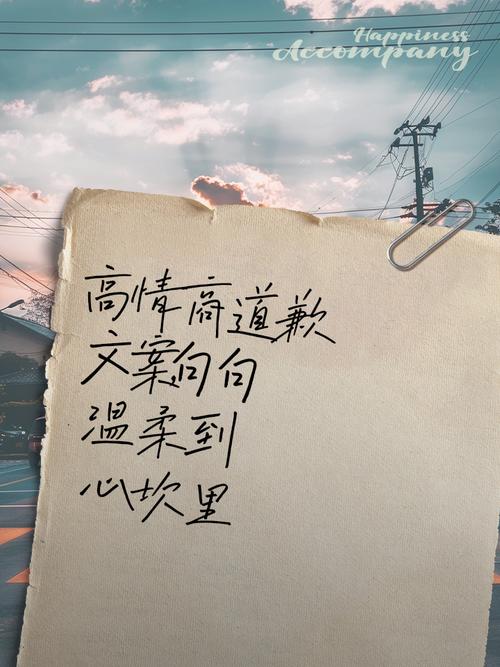 Happiness
Accompany
高情商道歉
文案句句
温柔到
心坎里